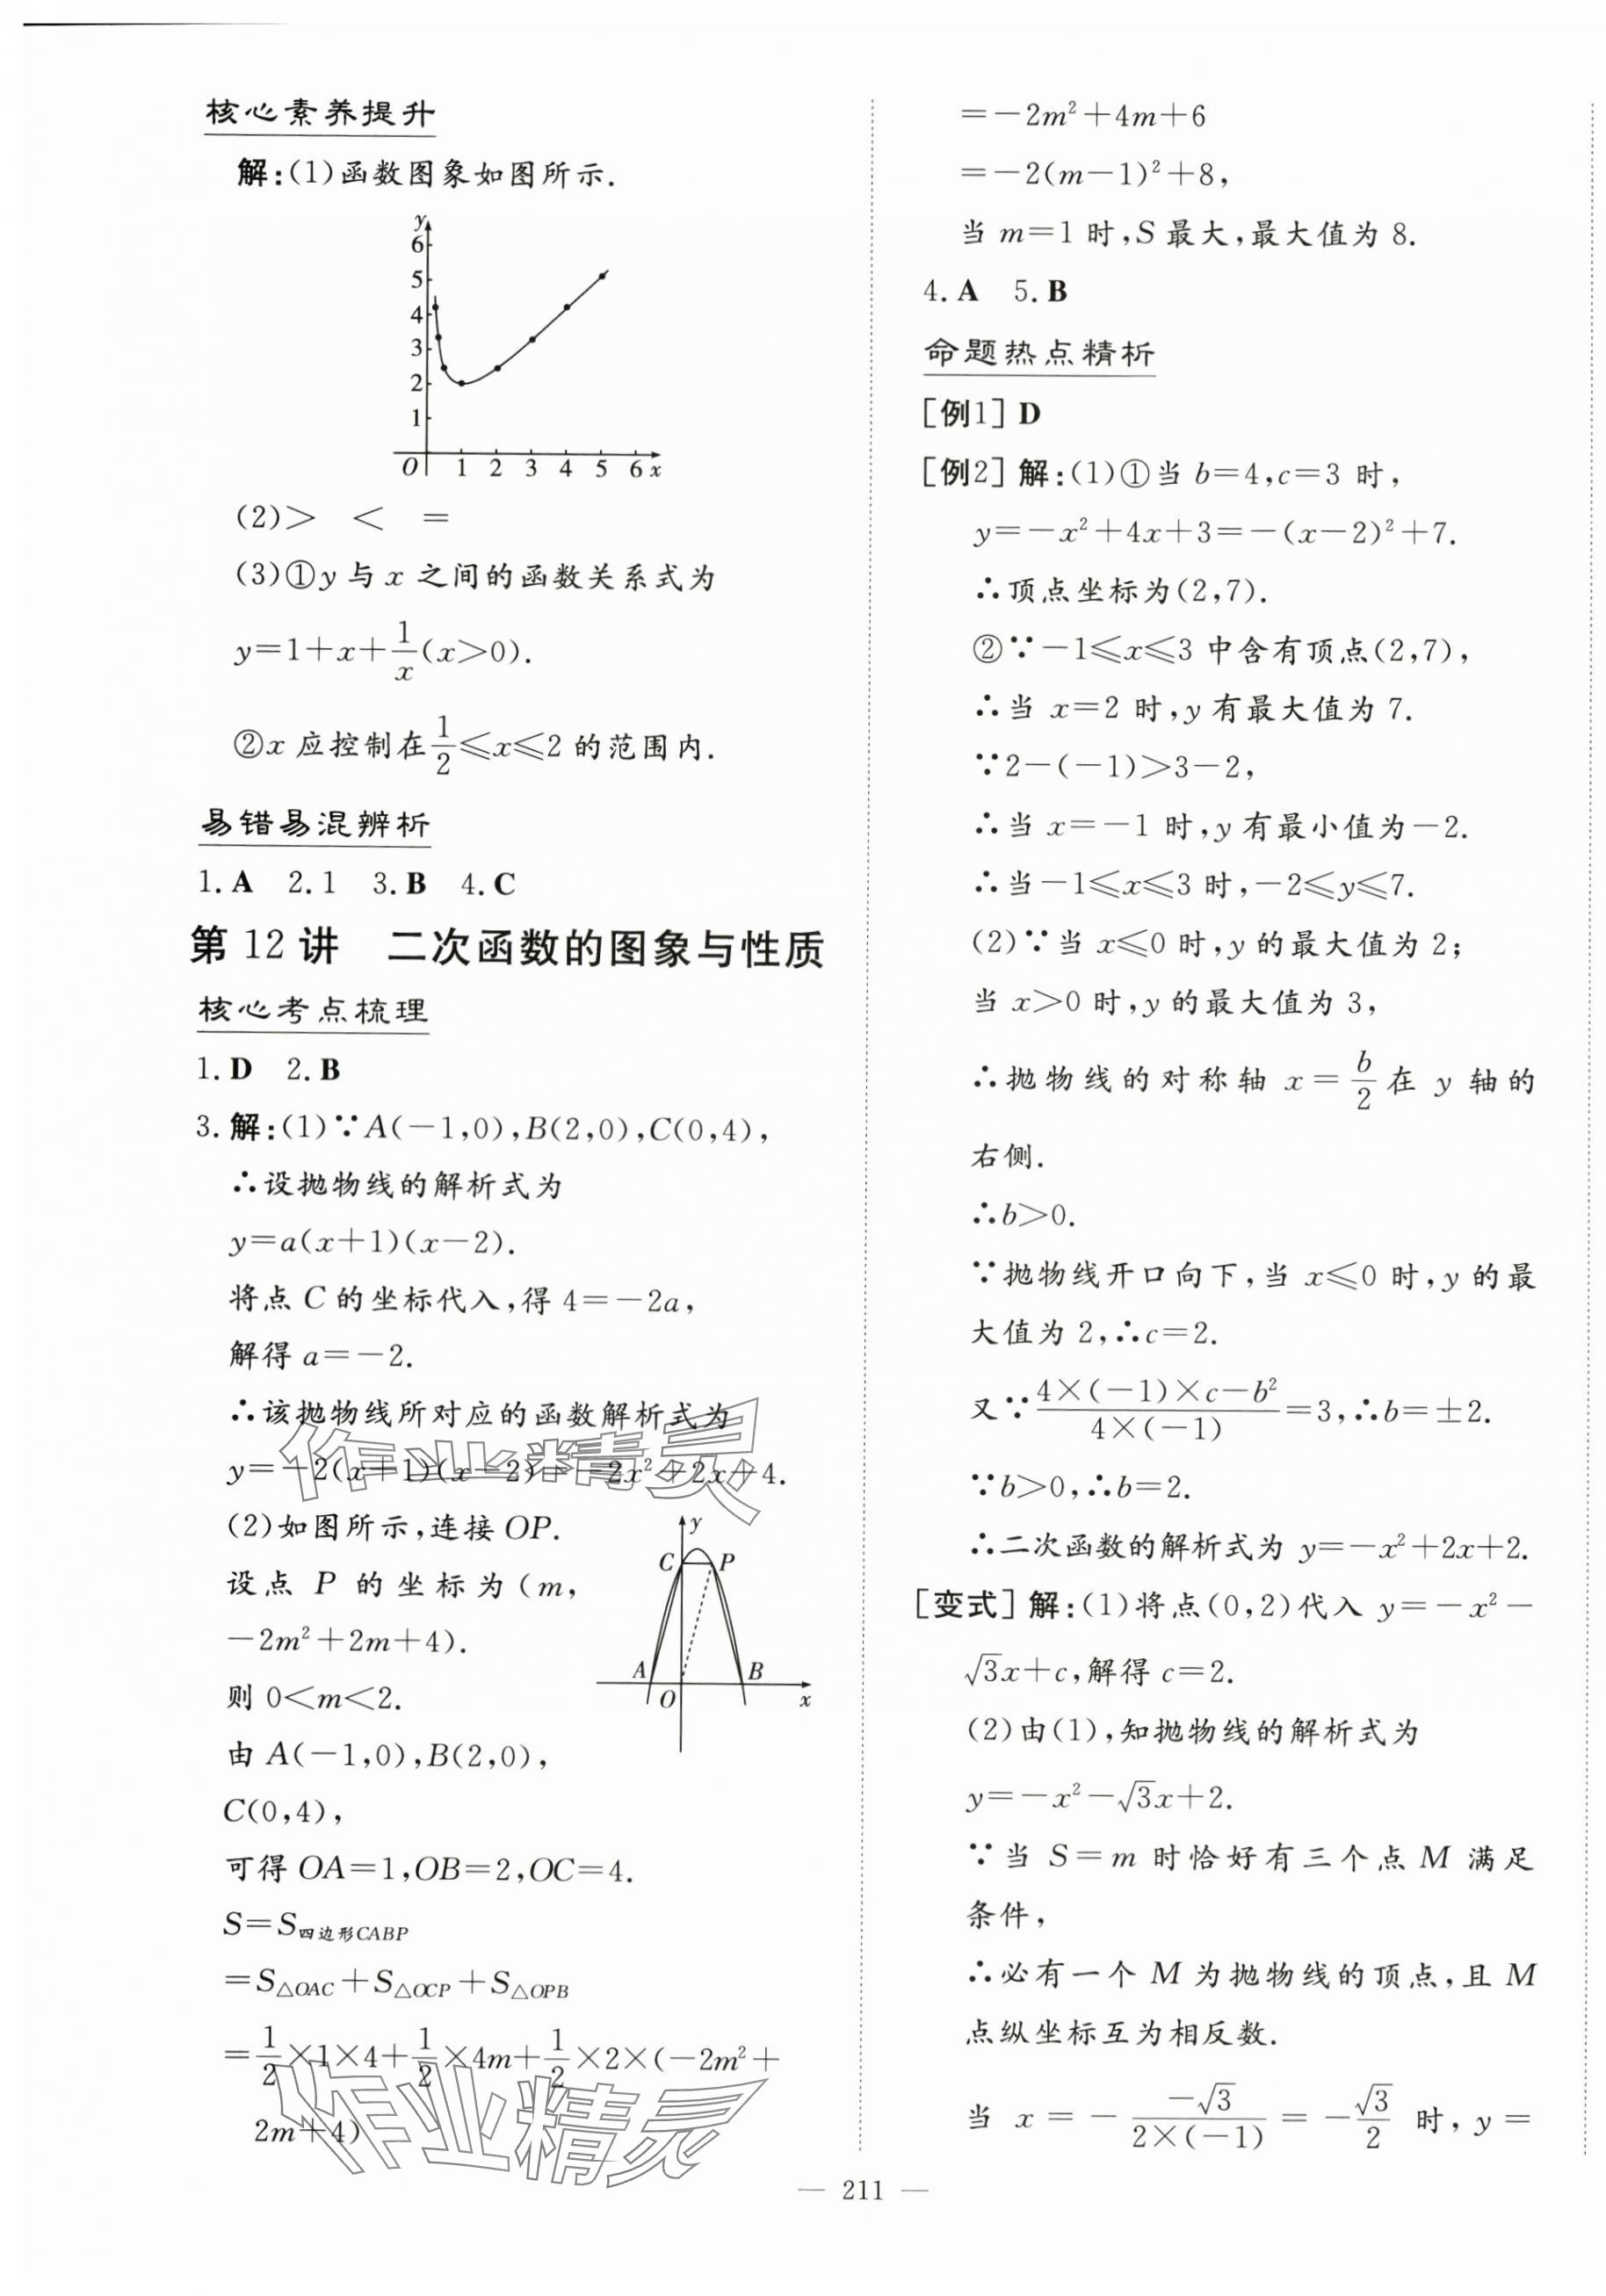 核心素养提升
解:(1)函数图象如图所示.
y
6
5
4
3
2
1
O 1 2 3 4 5 6 x
(2)> < =
(3)①y与x之间的函数关系式为
y=1+x+1/x(x>0).
②x应控制在1/2≤x≤2的范围内.
易错易混辨析
1.A 2.1 3.B 4.C
第12讲 二次函数的图象与性质
核心考点梳理
1.D 2.B
3.解:(1)∵A(-1,0),B(2,0),C(0,4),
∴设抛物线的解析式为
y=a(x+1)(x-2).
将点C的坐标代入,得4=-2a,
解得a=-2.
∴该抛物线所对应的函数解析式为
y=-2(x+1)(x-2)=-2x²+2x+4.
作业精灵
(2)如图所示,连接OP.
设点P的坐标为(m,
-2m²+2m+4).
则0<m<2.
由A(-1,0),B(2,0),
C(0,4),
y
C P
A B
O x
可得OA=1,OB=2,OC=4.
S=S四边形CABP
=S△OAC+S△OCP+S△OPB
=1/2×1×4+1/2×4m+1/2×2×(-2m²+
2m+4)
作业精灵
=-2m²+4m+6
=-2(m-1)²+8,
当m=1时,S最大,最大值为8.
4.A 5.B
命题热点精析
[例1] D
[例2] 解:(1)①当b=4,c=3时,
y=-x²+4x+3=-(x-2)²+7.
∴顶点坐标为(2,7).
②∵-1≤x≤3中含有顶点(2,7),
∴当x=2时,y有最大值为7.
∵2-(-1)>3-2,
∴当x=-1时,y有最小值为-2.
∴当-1≤x≤3时,-2≤y≤7.
(2)∵当x≤0时,y的最大值为2;
当x>0时,y的最大值为3,
∴抛物线的对称轴x=b/2在y轴的
右侧.
∴b>0.
∵抛物线开口向下,当x≤0时,y的最
大值为2,∴c=2.
又∵(4×(-1)×c-b²)/(4×(-1))=3,∴b=±2.
∵b>0,∴b=2.
∴二次函数的解析式为y=-x²+2x+2.
[变式] 解:(1)将点(0,2)代入y=-x²-
√3x+c,解得c=2.
(2)由(1),知抛物线的解析式为
y=-x²-√3x+2.
∵当S=m时恰好有三个点M满足
条件,
∴必有一个M为抛物线的顶点,且M
点纵坐标互为相反数.
当x=-(-√3)/(2×(-1))=-√3/2时,y=
— 211 —